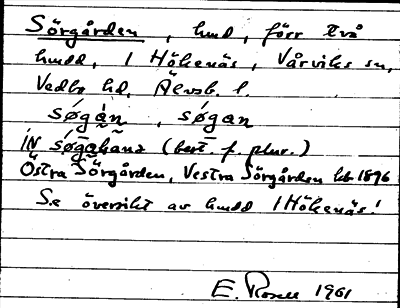 Sörgården, hmd, förr två
hmdd, i Hökenäs, Vårviks sn,
Vedbo hd, Älvsb. l.
søgàn, søgan
IN søgahanz (best. f. plur.)
Östra Sörgården, Vestra Sörgården kb 1896
Se översikt av hmdd i Hökenäs!
E. Rosell 1961